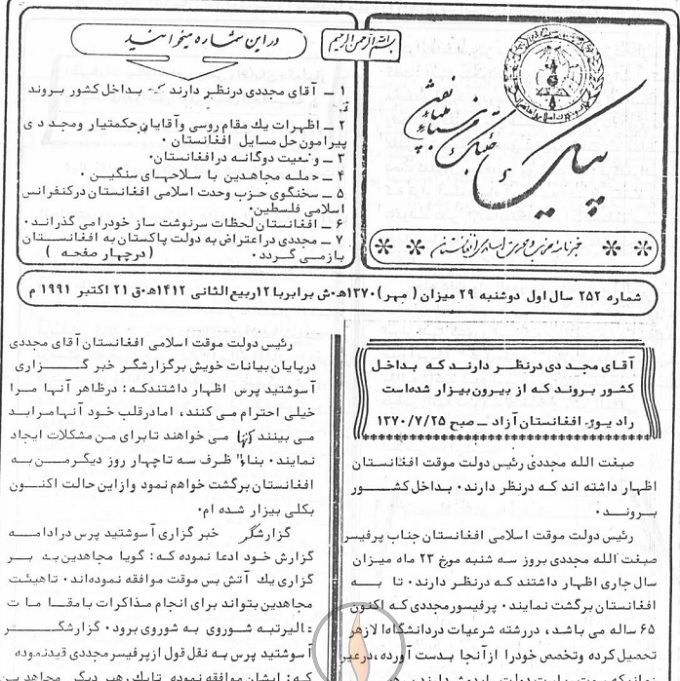 بسم الله الرحمن الرحیم
پیام
خبرنامه
شماره ۲۵۲ سال اول دوشنبه ۲۹ میزان ( مهر ) ۱۳۷۰ه‍.ش برابربا ۱۲ربیع الثانی ۱۴۱۲ه‍.ق ۲۱ اکتبر ۱۹۹۱ م
در این شماره میخوانید
۱ ـ آقای مجددی درنظر دارند که بداخل کشور بروند
۲ ـ اظهرات یك مقام روسی وآقایان حکمتیار ومجددی
پیرامون حل مسایل افغانستان .
۳ ـ وضعیت دوگانه درافغانستان.
۴ ـ حمله مجاهدین با سلاحهای سنگین .
۵ ـ سخنگوی حزب وحدت اسلامی افغانستان درکنفرانس
اسلامی فلسطین.
۶ ـ افغانستان لحظات سرنوشت ساز خودرامی گذراند.
۷ ـ مجددی دراعتراض به دولت پاکستان به افغانستان
بازمی گردد . (درچهار صفحه )
آقای مجددی درنظر دارند که بداخل
کشور بروند که از بیرون بیزار شده‌است
رادیو افغانستان آزاد ـ صبح ۱۳۷۰/۷/۲۵
صبغت الله مجددی رئیس دولت موقت افغانستان
اظهار داشته اند که درنظر دارند. بداخل کشور
بروند.
رئیس دولت موقت اسلامی افغانستان جناب پرفیسر
صبغت الله مجددی بروز سه شنبه مورخ ۲۳ ماه میزان
سال جاری اظهار داشتند که درنظر دارند. تا به
افغانستان برگشت نمایند. پرفیسورمجددی که اکنون
۶۵ ساله می باشد، دررشته شرعیات دردانشگاه الازهر
تحصیل کرده وتخصص خودرا ازآنجا بدست آورده، درعین
رئیس دولت موقت اسلامی افغانستان آقای مجددی
درپایان بیانات خویش برگزارشگر خبر گزاری
آسوشتید پرس اظهار داشتندکه: درظاهر آنها مرا
خیلی احترام می کنند، امادرقلب خود آنهامرابد
می بینند کها می خواهند تابرای من مشکلات ایجاد
نمایند. بناء ظرف سه تاچهار روز دیگرمن به
افغانستان برگشت خواهم نمود وازاین حالت اکنون
بکلی بیزار شده ام.
گزارشگر خبر گزاری آسوشتید پرس درادامه
گزارش خود ادعا نموده که: گویا مجاهدین به بر
گزاری یك آتش بس موقت موافقه نموده‌اند. تاهیئت
مجاهدین بتواند برای انجام مذاکرات بامقامات
عالیرتبه شوروی به شوروی برود. گزارشگر
آسوشتید پرس به نقل قول ازپرفیسرمجددی قیدنموده
که: ایشان موافقه نموده تایك رهبر دیگر مجاهدین